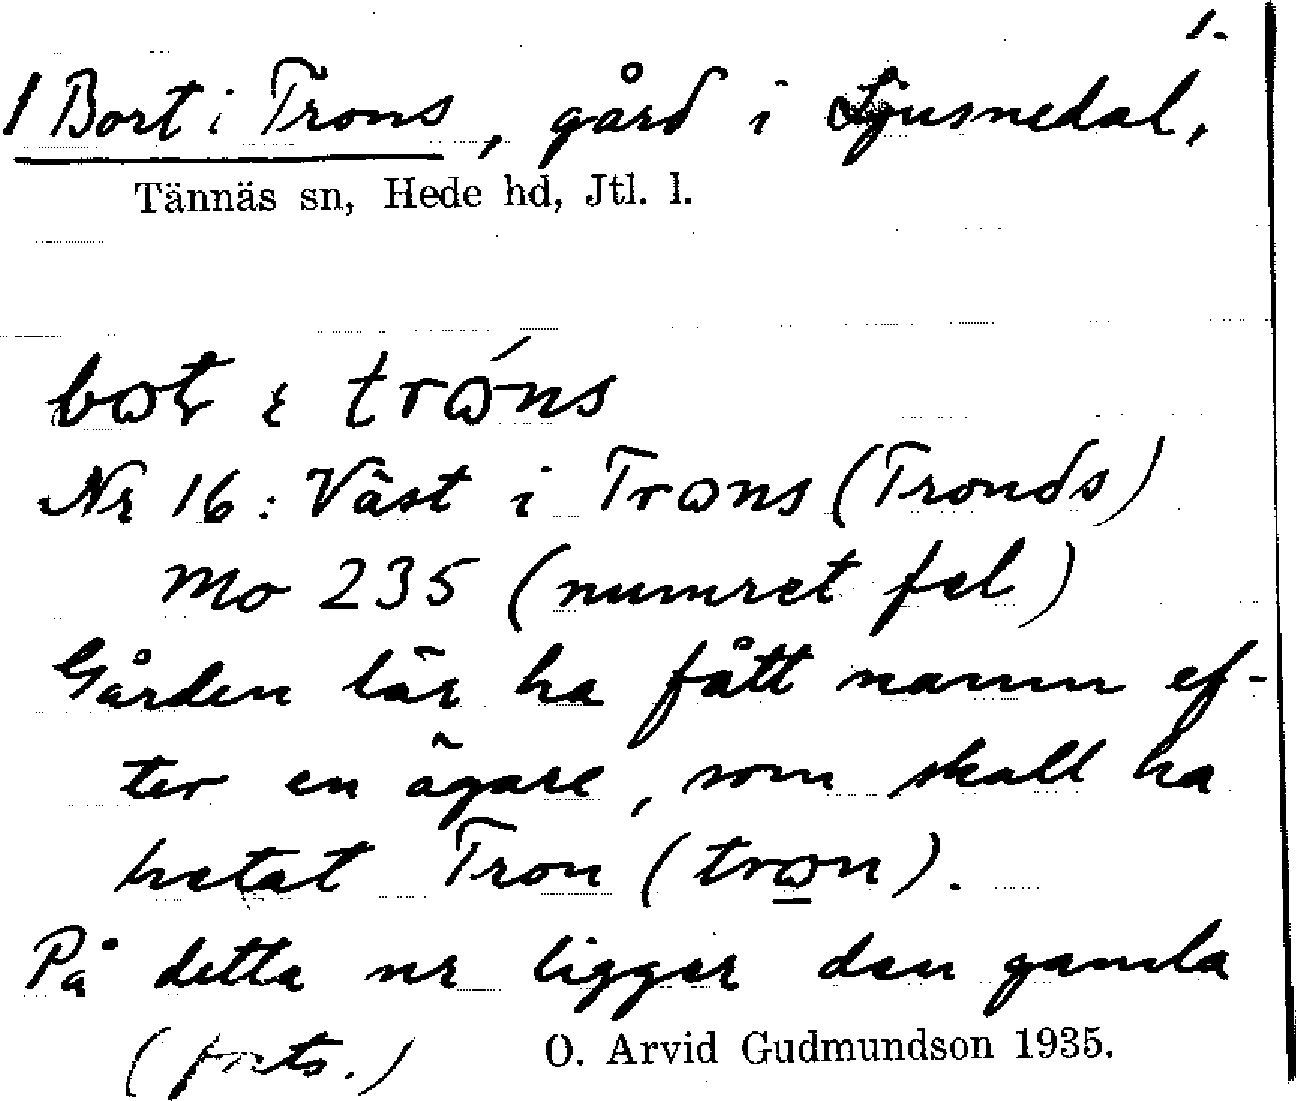 1.
1 Bort i Trons, gård i Ljusnedal,
Tännäs sn, Hede hd, Jtl. l.
Nr 16: Väst i Trons (Tronds)
Mo 235 (numret fel)
Gården lär ha fått namn ef-
ter en ägare, som skall ha
hetat Tron (tron).
På detta nr ligger den gamla
(forts.) O. Arvid Gudmundson 1935.